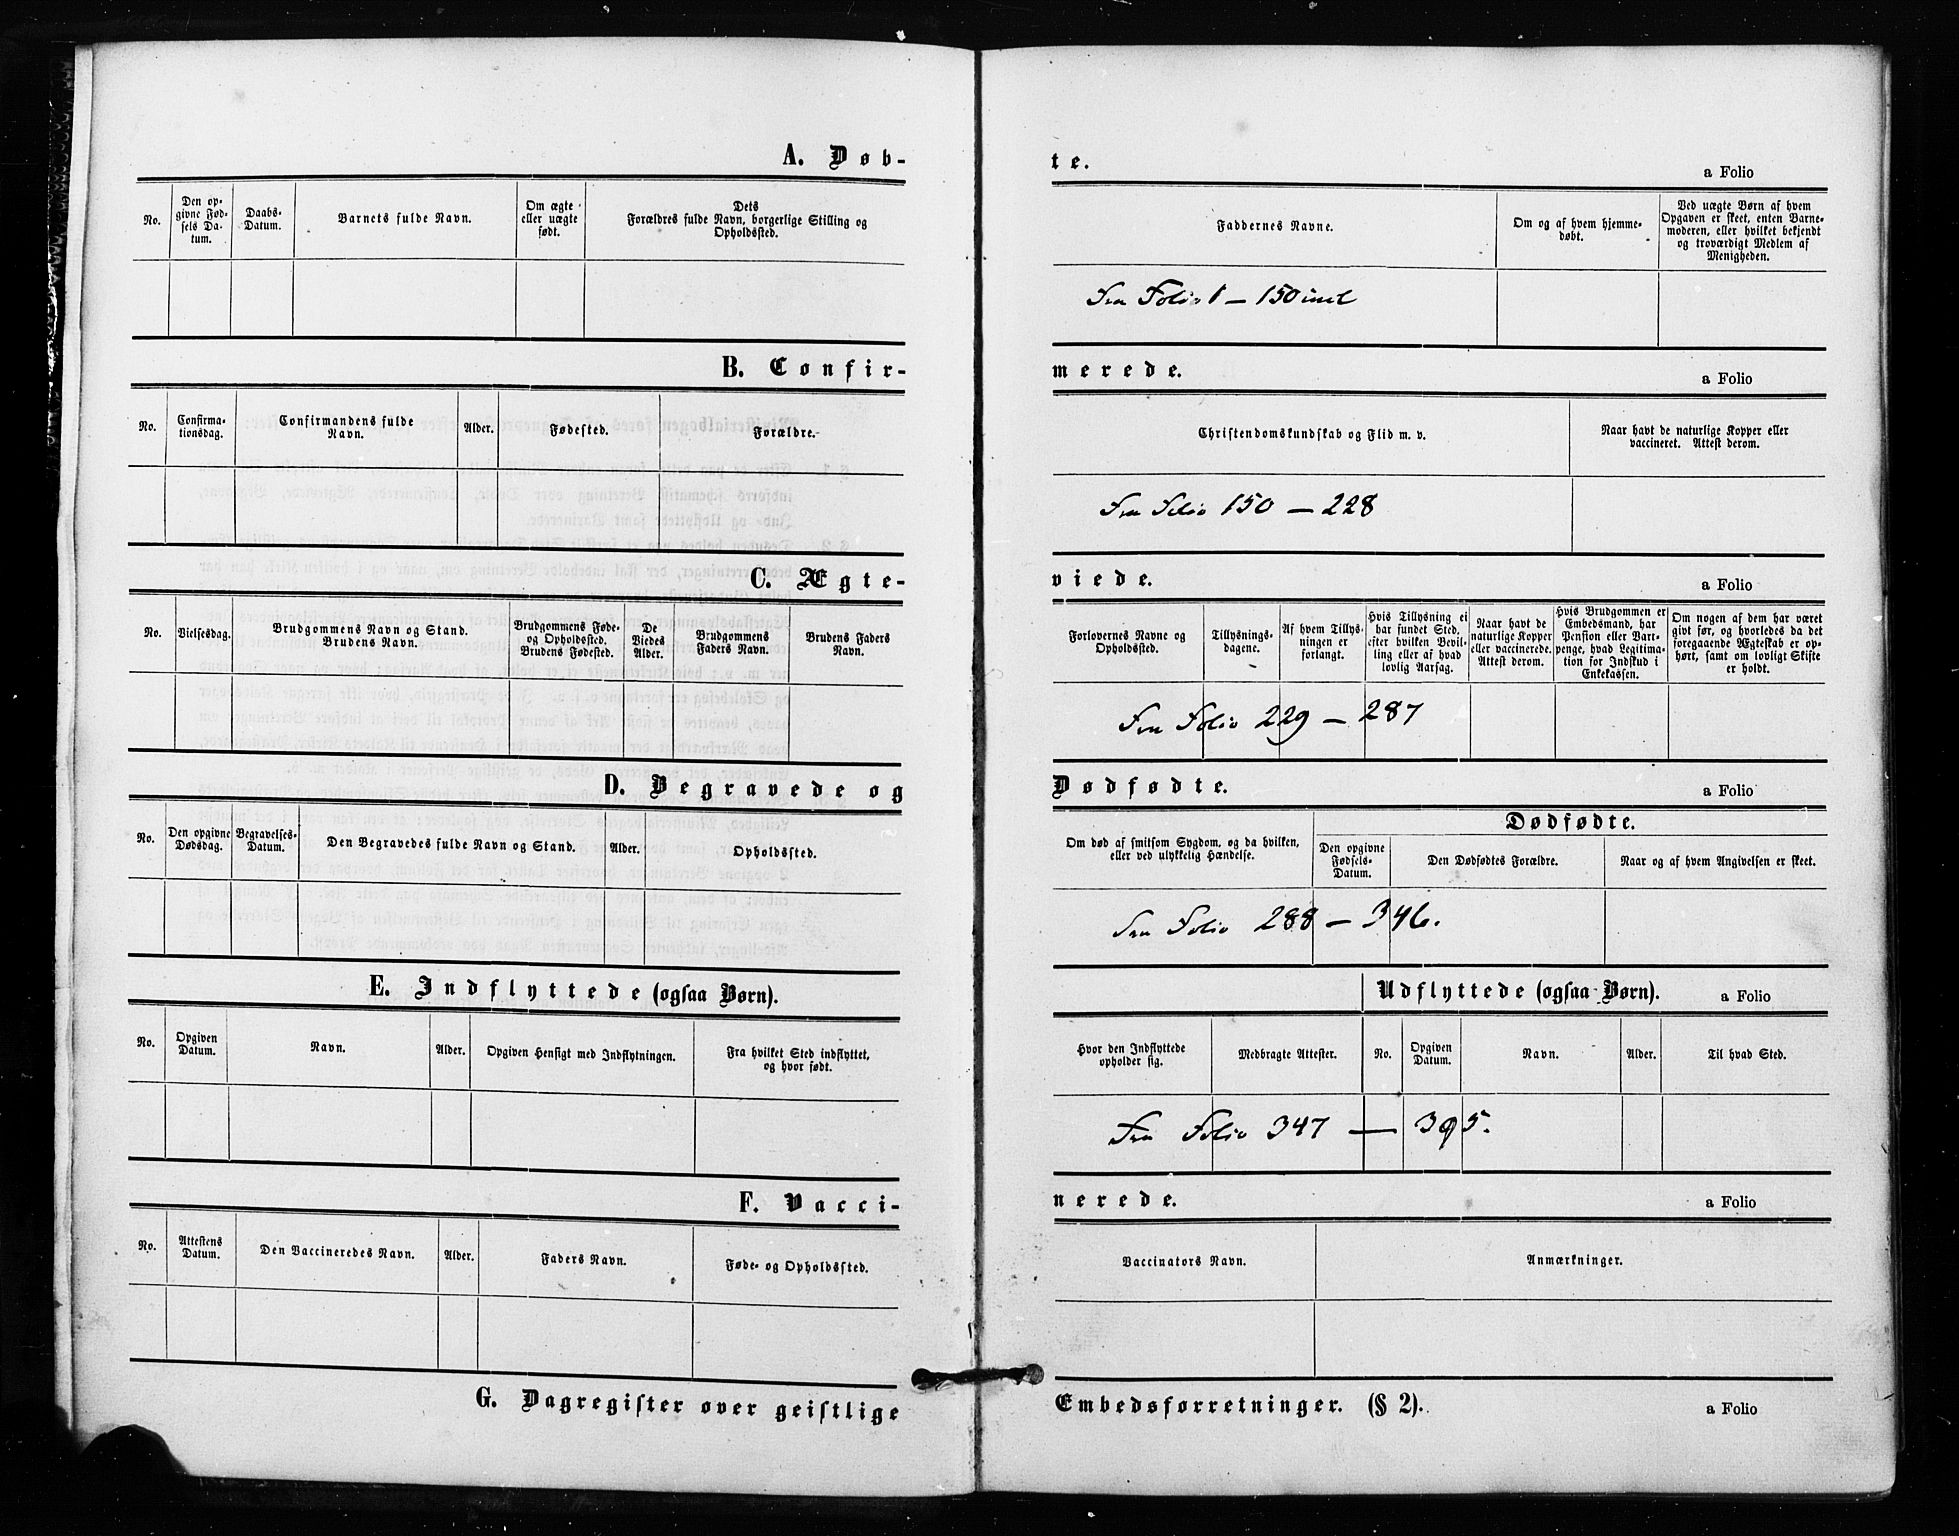 A. Døbte. a Folio
No.
Den opgivne Fødsels Datum.
Daabs-Datum.
Barnets fulde Navn.
Om ægte eller uægte født.
Dets Forældres fulde Navn, borgerlige Stilling og Opholdssted.
Faddernes Navne.
Om og af hvem hjemmedøbt.
Ved uægte Børn af hvem Opgaven er skeet, enten Barnemoderen, eller hvilket bekjendt og troværdigt Medlem af Menigheden.
Fra Folio 1 — 150 incl
B. Confirmerede. a Folio
No.
Confirmationsdag.
Confirmandens fulde Navn.
Alder.
Fødested.
Forældre.
Christendomskundskab og Flid m. v.
Naar havt de naturlige Kopper eller vaccineret. Attest derom.
Fra Folio 150 — 228
C. Ægteviede. a Folio
No.
Vielsesdag.
Brudgommens Navn og Stand. Brudens Navn.
Brudgommens Føde- og Opholdssted. Brudens Fødested.
De Viedes Alder.
Brudgommens Faders Navn.
Brudens Faders Navn.
Forlovernes Navne og Opholdssted.
Tillysningsdagene.
Af hvem Tillysningen er forlangt.
Hvis Tillysning ei har fundet Sted, efter hvilken Bevilling eller af hvad lovlig Aarsag.
Naar havt de naturlige Kopper eller vaccinerede. Attest derom.
Hvis Brudgommen er Embedsmand, har Pension eller Vartpenge, hvad Legitimation for Indskud i Enkekassen.
Om nogen af dem har været givt før, og hvorledes da det foregaaende Ægteskab er ophørt, samt om lovligt Skifte er holdt.
Fra Folio 229 — 287
D. Begravede og Dødfødte. a Folio
No.
Den opgivne Dødsdag.
Begravelses-Datum.
Den Begravedes fulde Navn og Stand.
Alder.
Opholdssted.
Om død af smitsom Sygdom, og da hvilken, eller ved ulykkelig Hændelse.
Dødfødte.
Den opgivne Fødsels-Datum.
Den Dødfødtes Forældre.
Naar og af hvem Angivelsen er skeet.
Fra Folio 288 — 346.
E. Indflyttede (ogsaa Børn). Udflyttede (ogsaa Børn). a Folio
No.
Opgiven Datum.
Navn.
Alder.
Opgiven Hensigt med Indflytningen.
Fra hvilket Sted indflyttet, og hvor født.
Hvor den Indflyttede opholder sig.
Medbragte Attester.
No.
Opgiven Datum.
Navn.
Alder.
Til hvad Sted.
Fra Folio 347 — 395.
F. Vaccinerede. a Folio
No.
Attestens Datum.
Den Vaccineredes Navn.
Alder.
Faders Navn.
Føde- og Opholdssted.
Vaccinators Navn.
Anmærkninger.
G. Dagregister over geistlige Embedsforretninger. (§ 2). a Folio